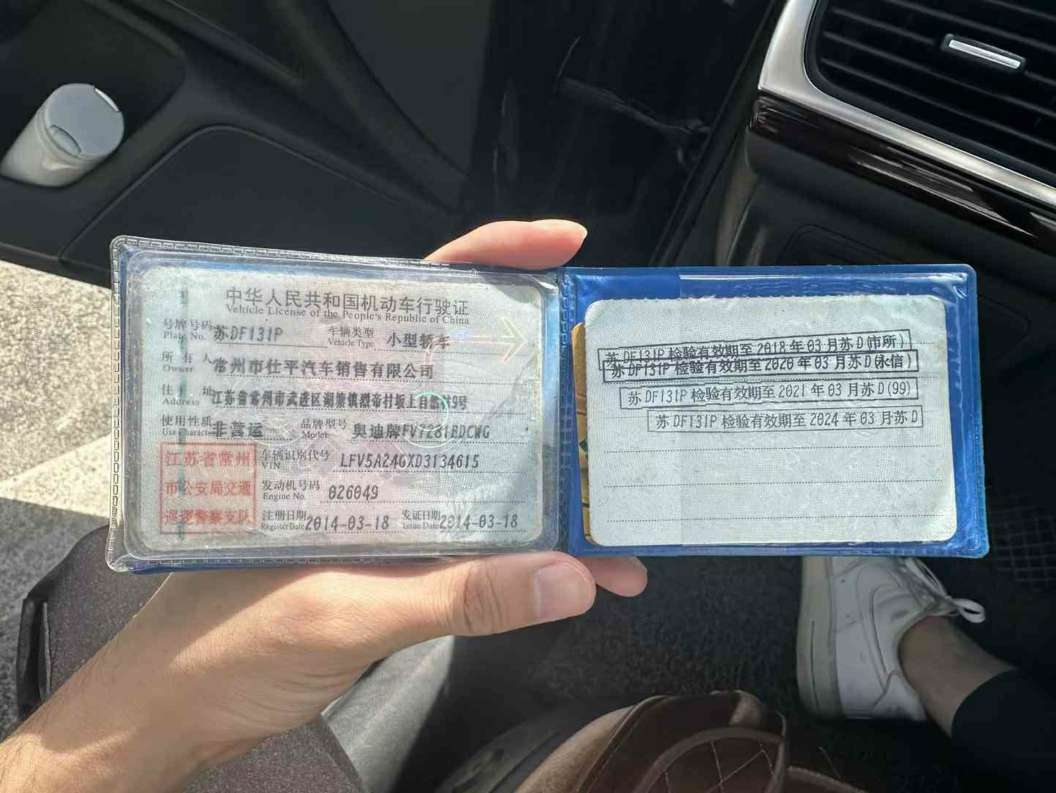 中华人民共和国机动车行驶证
Vehicle License of the People's Republic of China
号牌号码 苏DF131P 车辆类型 小型轿车
Plate No. Vehicle Type
所有人 常州市仕平汽车销售有限公司
Owner
住址 江苏省常州市武进区湖塘镇
Address
使用性质 非营运 品牌型号 奥迪牌FV7281BDCWG
Use Character Model
江苏省常州
市公安局交通
巡逻警察支队
车辆识别代号 LFV5A24GXD3134615
VIN
发动机号码 026049
Engine No.
注册日期 2014-03-18 发证日期 2014-03-18
Register Date Issue Date
苏DF131P 检验有效期至2018年03月苏D(市所)
苏DF131P 检验有效期至2020年03月苏D(永信)
苏DF131P 检验有效期至2021年03月苏D(99)
苏DF131P 检验有效期至2024年03月苏D